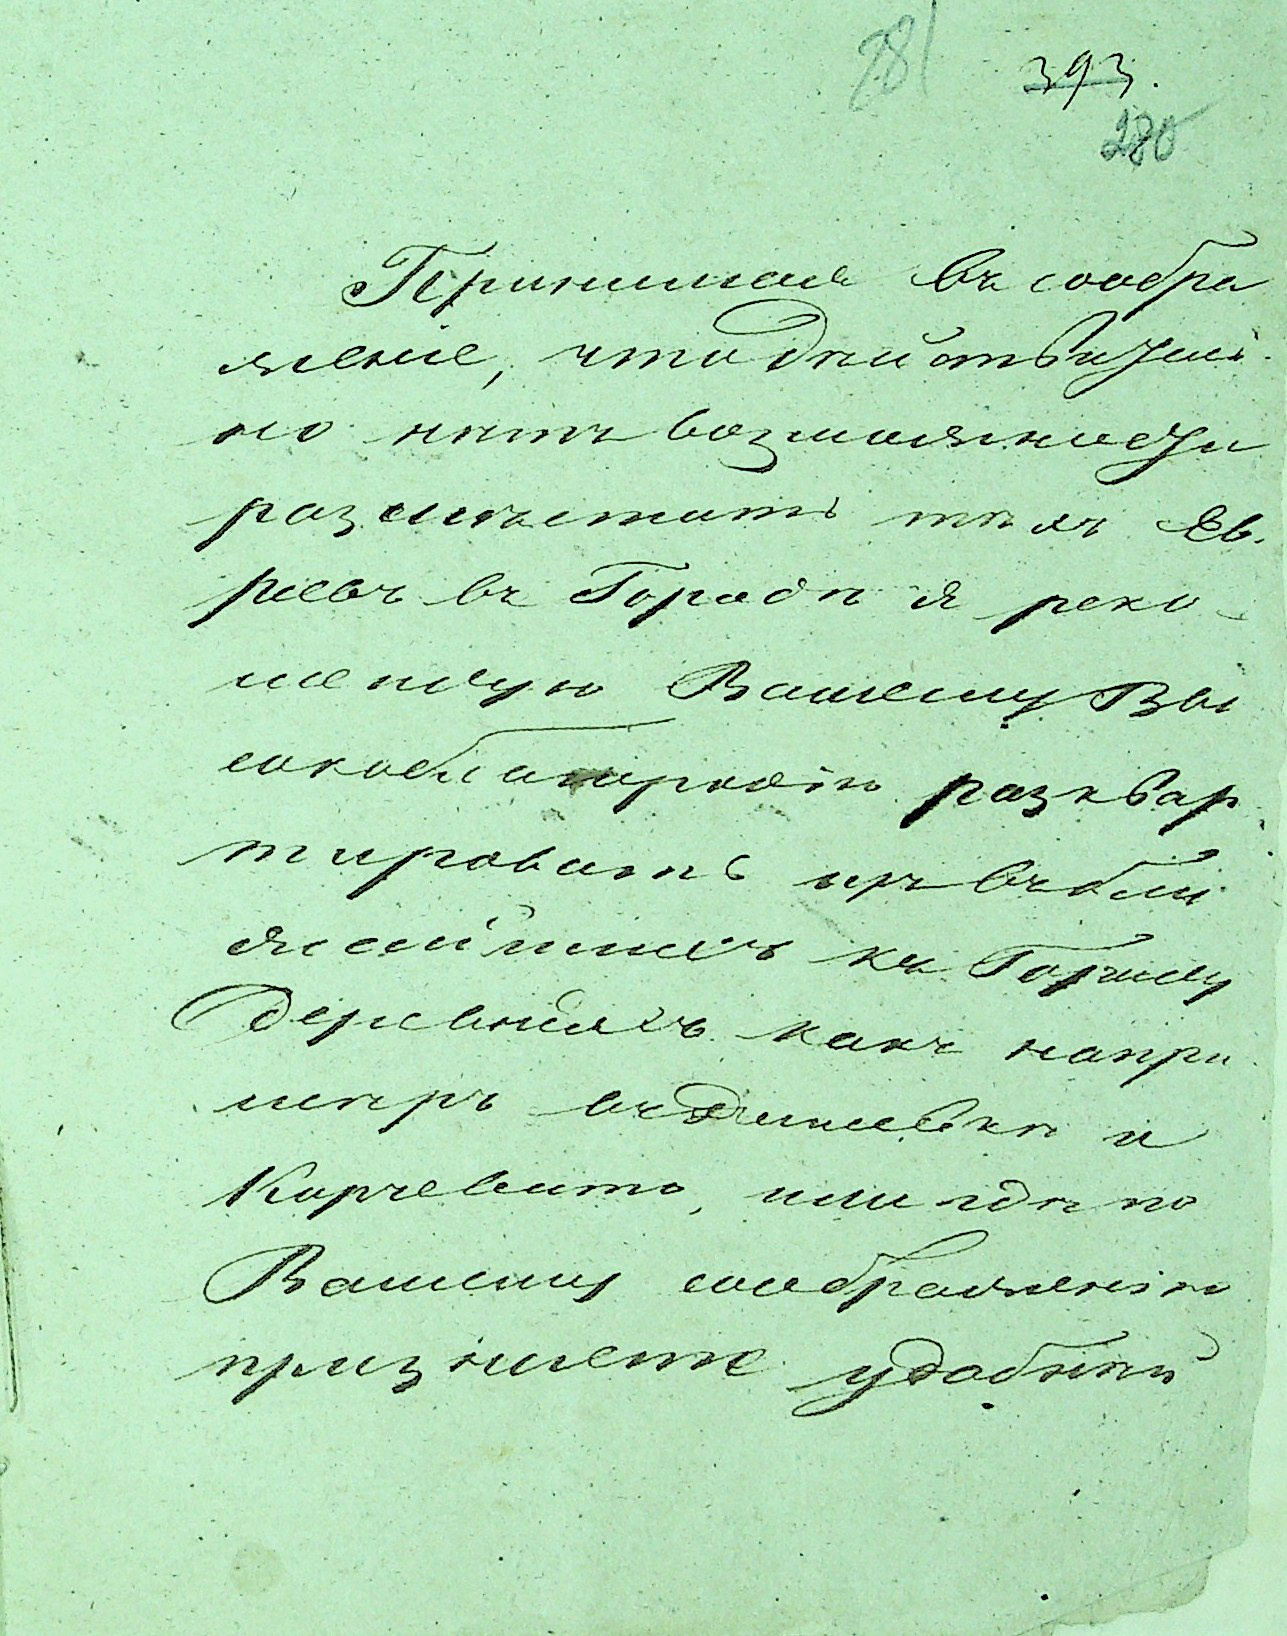 281
393.
280
Принимая въ сообра
женіе, что действитель
но нѣтъ возможности
размѣстить тѣхъ Ев.
реевъ въ Городѣ я реко
мендую Вашему Вы
сокоблагородію разквар
тировать ихъ въ бли
жайшихъ къ Городу
деревняхъ какъ напри
мѣръ въ Демiевкѣ и
Корчеватъ, или гдѣ по
Вашему соображенію
признаете удобнѣй